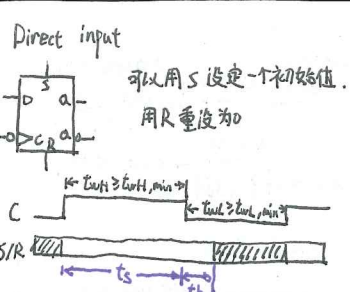 Direct input
S
D Q
C Q
R
可以用S设定一个初始值.
用R重设为0
twH≥twH,min
C
twL≥twL,min
S/R
ts
th